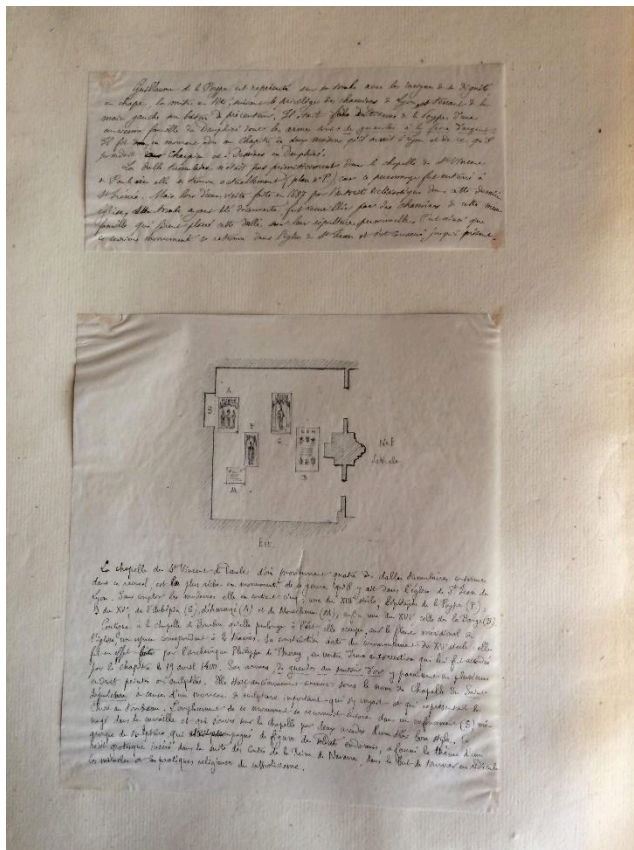 Guillaume de la Poype est représenté sur sa tombe avec les insignes de sa dignité
en chape, la mitre en tête, suivant le privilège des chanoines de Lyon, et tenant de la
main gauche un bâton de précenteur. Il était fils de de la Poype, d'une
ancienne famille du Dauphiné dont les armes sont de gueules à la fasce d'argent.
Il fit en mourant don au Chapitre de deux maisons qu'il avait à Lyon et de ce qu'il
possédait Charpieu et à Dessines en Dauphiné.
La dalle tumulaire n'était pas primitivement dans la chapelle de St Vincent
de Paul où elle se trouve actuellement (plan n° P) car ce personnage fut enterré à
St Irénée. Mais lors d'une visite faite en par l'autorité ecclésiastique dans cette dernière
église, tombe ayant été découverte, fut recueillie par des Chanoines de cette même
famille qui firent placer cette dalle sur leur sépulture personnelle. C'est ainsi que
ce curieux monument se retrouve dans l'église de St Jean et s'est conservé jusqu'à présent.
S
A
P
E
B
M
Nef
latérale
Est.
La chapelle de St Vincent de Paul, d'où proviennent quatre des dalles tumulaires contenues
dans ce recueil, est la plus riche en monuments de ce genre qu'il y ait dans l'église de St Jean de
Lyon. Sans compter les modernes elle en contient cinq; l'une du XIIIe siècle, de la Poype (P),
3 du XVe, de (E), d' (A) et de (M), enfin une du XVIe celle de la Barge (B)
Contiguë à la chapelle de Bourbon qu'elle prolonge à l'Est elle occupe, sur le flanc méridional de
l'église un espace correspondant à 2 travées. Sa construction date du commencement du XVe siècle; elle
fut en effet par l'archevêque Philippe de Thurey, en vertu d'une autorisation qui lui fut accordée
par le chapitre le 19 avril 1401. Ses armes, de gueules au sautoir d'or y paraissent en plusieurs
endroits peintes ou sculptées. Elle était anciennement connue sous le nom de Chapelle du Saint
Sépulchre à cause d'un morceau de sculpture important qui s'y voyait et qui représentait le
Christ au Tombeau. L'emplacement de ce monument se reconnaît encore dans un enfoncement (S) mé-
nagé dans la muraille et qui s'ouvre sur la chapelle par deux arcades d'un très bon style. Ce
groupe de sculpture, que accompagnait de figures des soldats endormis, a fourni le thème d'un
récit grotesque inséré dans la suite des Contes de la Reine de Navarre, dans le but de tourner en ridicule
les miracles et les pratiques religieuses du catholicisme.